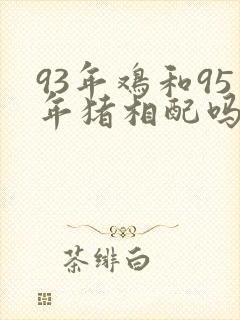 93年鸡和95
年猪相配吗
茶绯白